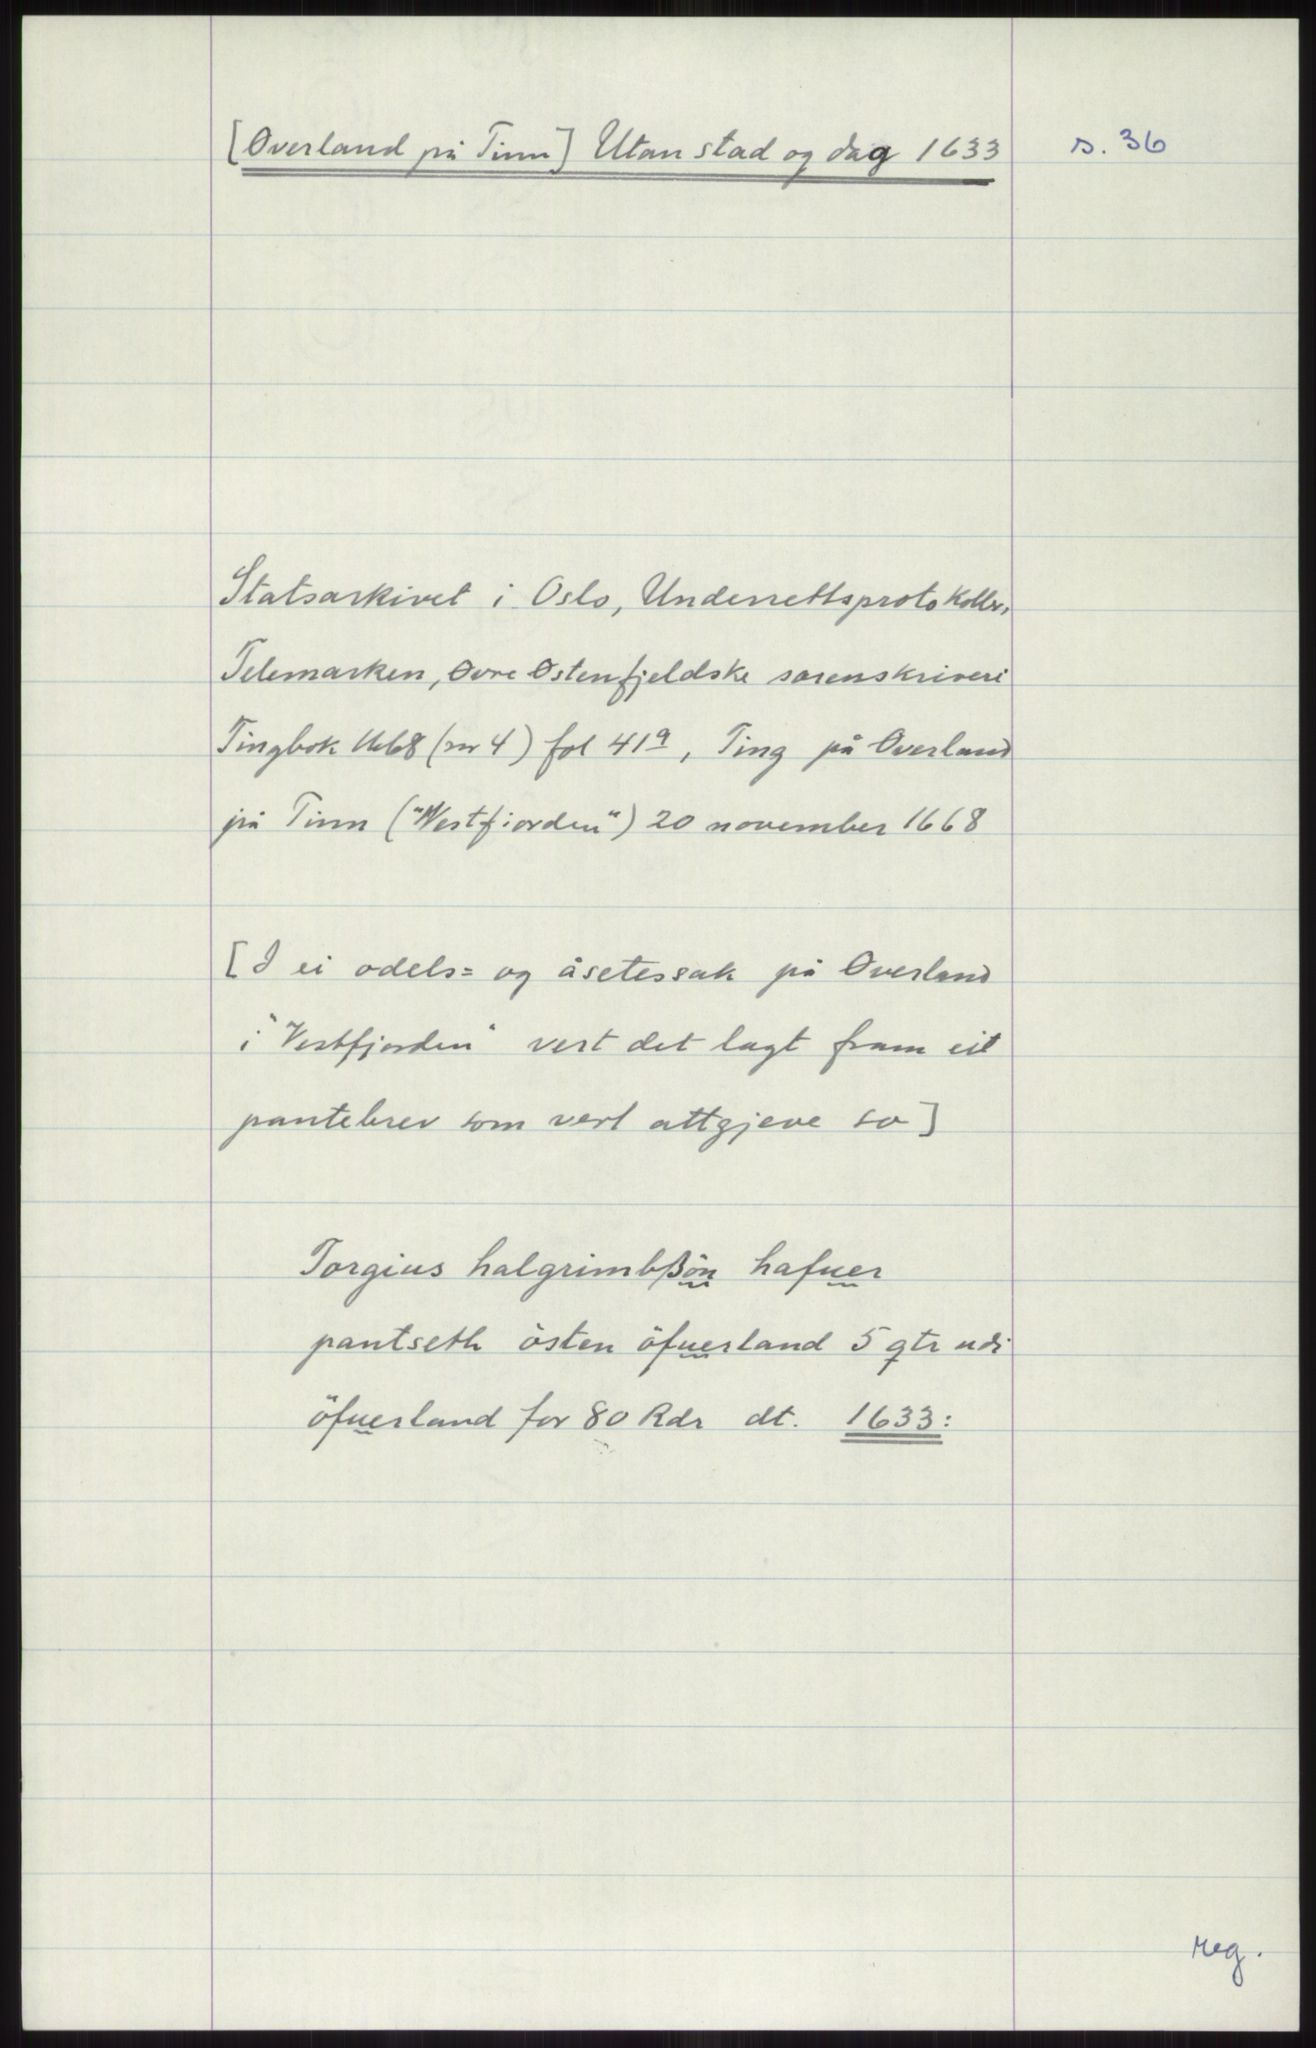 [Øverland på Tinn] Utan stad og dag 1633
s. 36
Statsarkivet i Oslo, Underrettsprotokoller,
Telemarken, Øvre Østenfjeldske sorenskriveri
Tingbok 1668 (nr 4) fol 41a, Ting på Øverland
på Tinn ("Westfiorden") 20 november 1668
[I ei odels= og åsetessak på Øverland
i "Vestfjorden" vert det lagt fram eit
pantebrev som vert attgjeve so]
Torgius halgrimbßön hafuer
pantseth östen öfuerland 5 qtr udi
öfuerland for 80 Rdr dt. 1633:
reg.